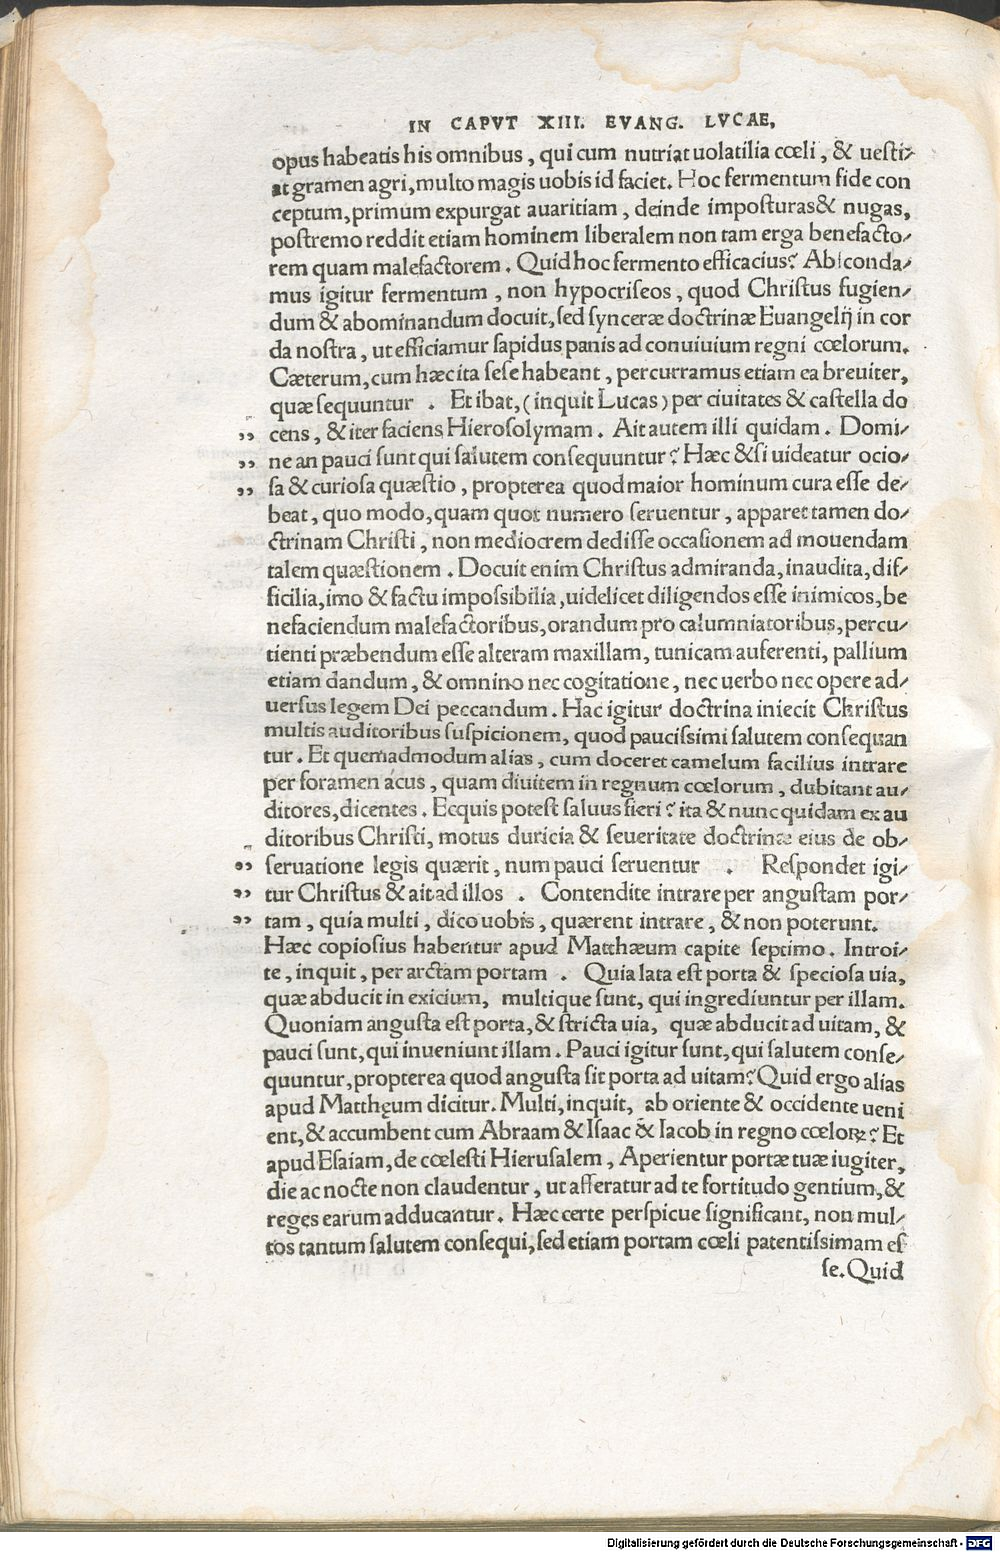 IN CAPVT XIII. EVANG. LVCAE,
opus habeatis his omnibus, qui cum nutriat uolatilia cœli, & uesti/
at gramen agri, multo magis uobis id faciet. Hoc fermentum fide con
ceptum, primum expurgat auaritiam, deinde imposturas & nugas,
postremo reddit etiam hominem liberalem non tam erga benefacto/
rem quam malefactorem. Quid hoc fermento efficacius? Absconda/
mus igitur fermentum, non hypocriseos, quod Christus fugien/
dum & abominandum docuit, sed synceræ doctrinæ Euangelij in cor
da nostra, ut efficiamur sapidus panis ad conuiuium regni cœlorum.
Cæterum, cum hæc ita sese habeant, percurramus etiam ea breuiter,
quæ sequuntur. Et ibat, (inquit Lucas) per ciuitates & castella do
,, cens, & iter faciens Hierosolymam. Ait autem illi quidam. Domi/
,, ne an pauci sunt qui salutem consequuntur? Hæc & si uideatur ocio/
,, sa & curiosa quæstio, propterea quod maior hominum cura esse de/
beat, quo modo, quam quot numero seruentur, apparet tamen do/
ctrinam Christi, non mediocrem dedisse occasionem ad mouendam
talem quæstionem. Docuit enim Christus admiranda, inaudita, dif/
ficilia, imo & factu impossibilia, uidelicet diligendos esse inimicos, be
nefaciendum malefactoribus, orandum pro calumniatoribus, percu/
tienti præbendum esse alteram maxillam, tunicam auferenti, pallium
etiam dandum, & omnino nec cogitatione, nec uerbo nec opere ad/
uersus legem Dei peccandum. Hac igitur doctrina iniecit Christus
multis auditoribus suspicionem, quod paucissimi salutem consequan
tur. Et quemadmodum alias, cum doceret camelum facilius intrare
per foramen acus, quam diuitem in regnum cœlorum, dubitant au/
ditores, dicentes. Ecquis potest saluus fieri? ita & nunc quidam ex au
ditoribus Christi, motus duricia & seueritate doctrinæ eius de ob/
,, seruatione legis quærit, num pauci seruentur. Respondet igi/
,, tur Christus & ait ad illos. Contendite intrare per angustam por/
,, tam, quia multi, dico uobis, quærent intrare, & non poterunt.
Hæc copiosius habentur apud Matthæum capite septimo. Introi/
te, inquit, per arctam portam. Quia lata est porta & speciosa uia,
quæ abducit in exicium, multique sunt, qui ingrediuntur per illam.
Quoniam angusta est porta, & stricta uia, quæ abducit ad uitam, &
pauci sunt, qui inueniunt illam. Pauci igitur sunt, qui salutem conse/
quuntur, propterea quod angusta sit porta ad uitam? Quid ergo alias
apud Matthęum dicitur. Multi, inquit, ab oriente & occidente ueni
ent, & accumbent cum Abraam & Isaac & Iacob in regno cœloꝝ? Et
apud Esaiam, de cœlesti Hierusalem, Aperientur portæ tuæ iugiter,
die ac nocte non claudentur, ut afferatur ad te fortitudo gentium, &
reges earum adducantur. Hæc certe perspicue significant, non mul/
tos tantum salutem consequi, sed etiam portam cœli patentissimam es
se. Quid
Digitalisierung gefördert durch die Deutsche Forschungsgemeinschaft - DFG